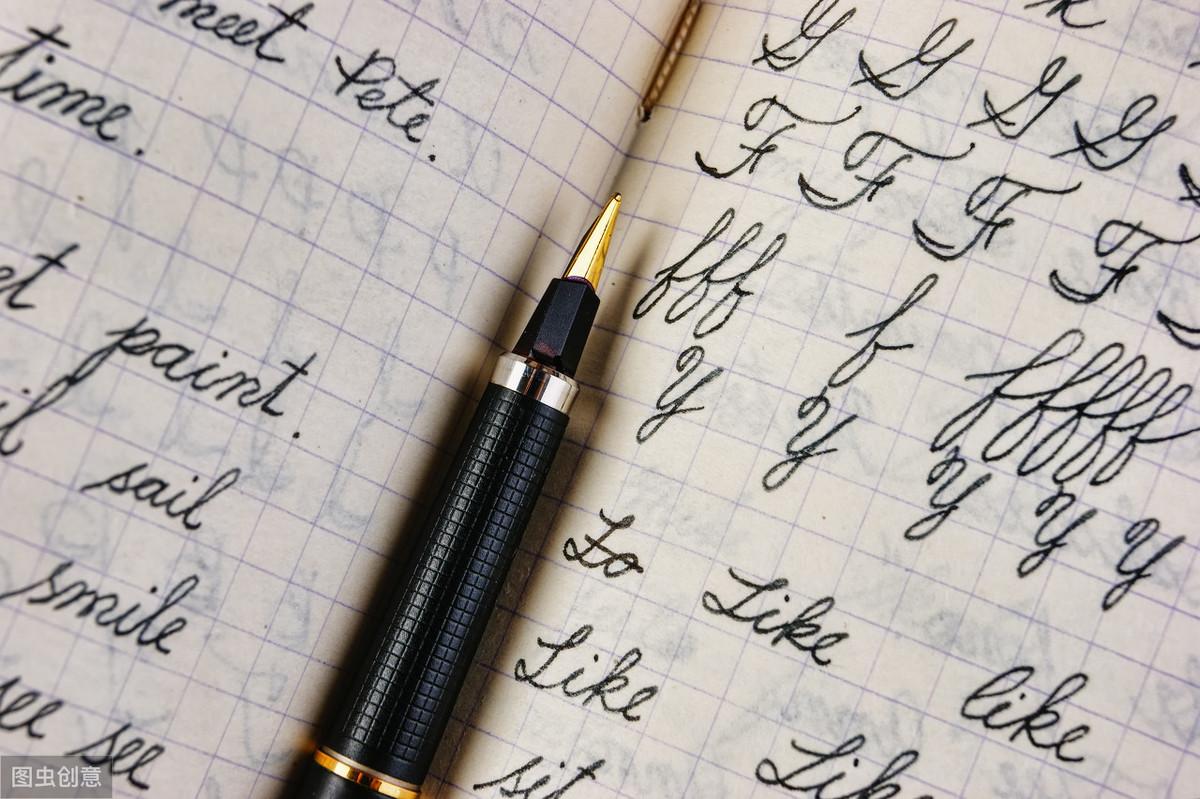 meet Pete.
time.
et paint.
il sail
smile
see see
G G G G
F F F F
fff f fffff
Y Y Y Y Y
Like
Like like
Like
sit
图虫创意